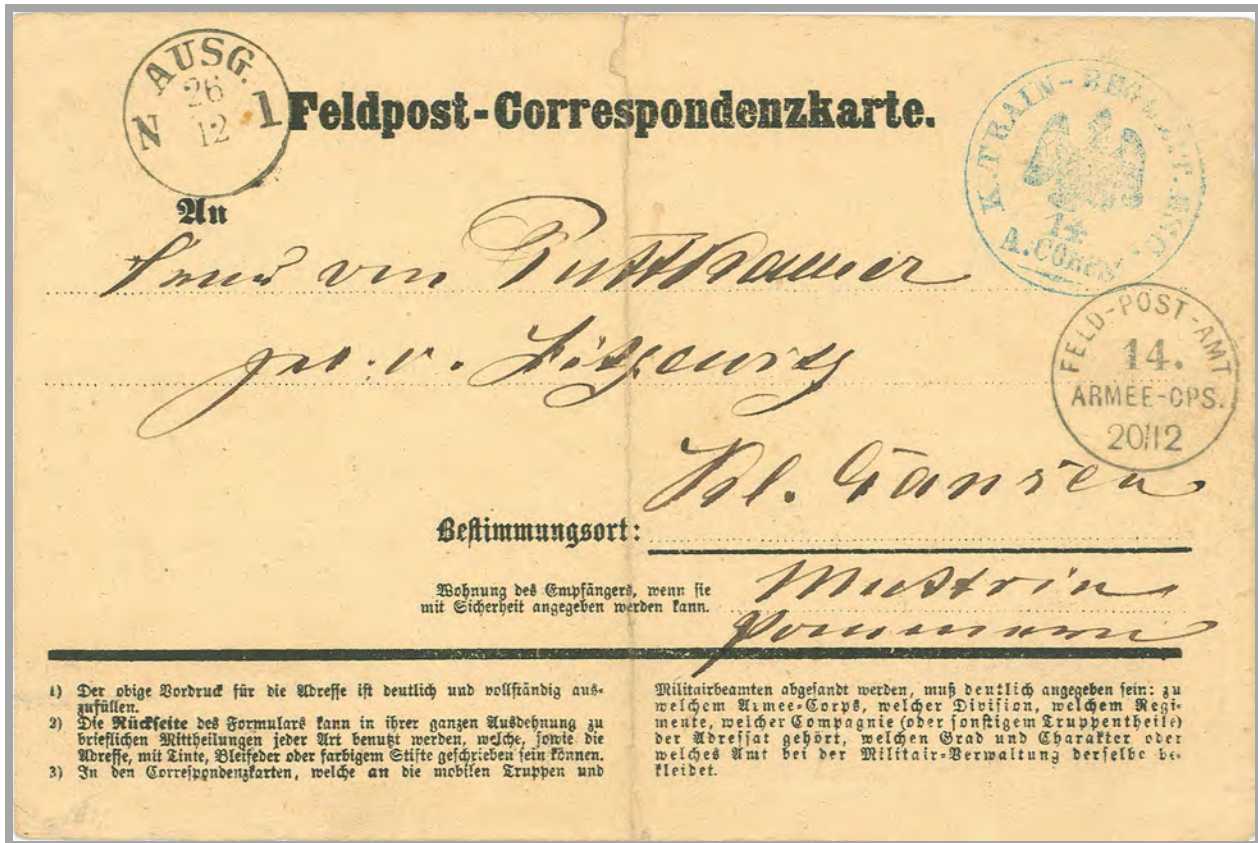 AUSG.
26
12
N 1
Feldpost-Correspondenzkarte.
K. TRAIN-
14
A. CORPS
An
Frau von Puttkamer
v.
FELD-POST-AMT
14.
ARMEE-CPS.
20/12
Kl. Gansen
Bestimmungsort:
Wohnung des Empfängers, wenn sie
mit Sicherheit angegeben werden kann.
Muttrin
Pommern
1) Der obige Vordruck für die Adresse ist deutlich und vollständig aus-
zufüllen.
2) Die Rückseite des Formulars kann in ihrer ganzen Ausdehnung zu
brieflichen Mittheilungen jeder Art benutzt werden, welche, sowie die
Adresse, mit Tinte, Bleifeder oder farbigem Stifte geschrieben sein können.
3) In den Correspondenzkarten, welche an die mobilen Truppen und
Militairbeamten abgesandt werden, muß deutlich angegeben sein: zu
welchem Armee-Corps, welcher Division, welchem Regi-
mente, welcher Compagnie (oder sonstigem Truppentheile)
der Adressat gehört, welchen Grad und Charakter oder
welches Amt bei der Militair-Verwaltung derselbe be-
kleidet.